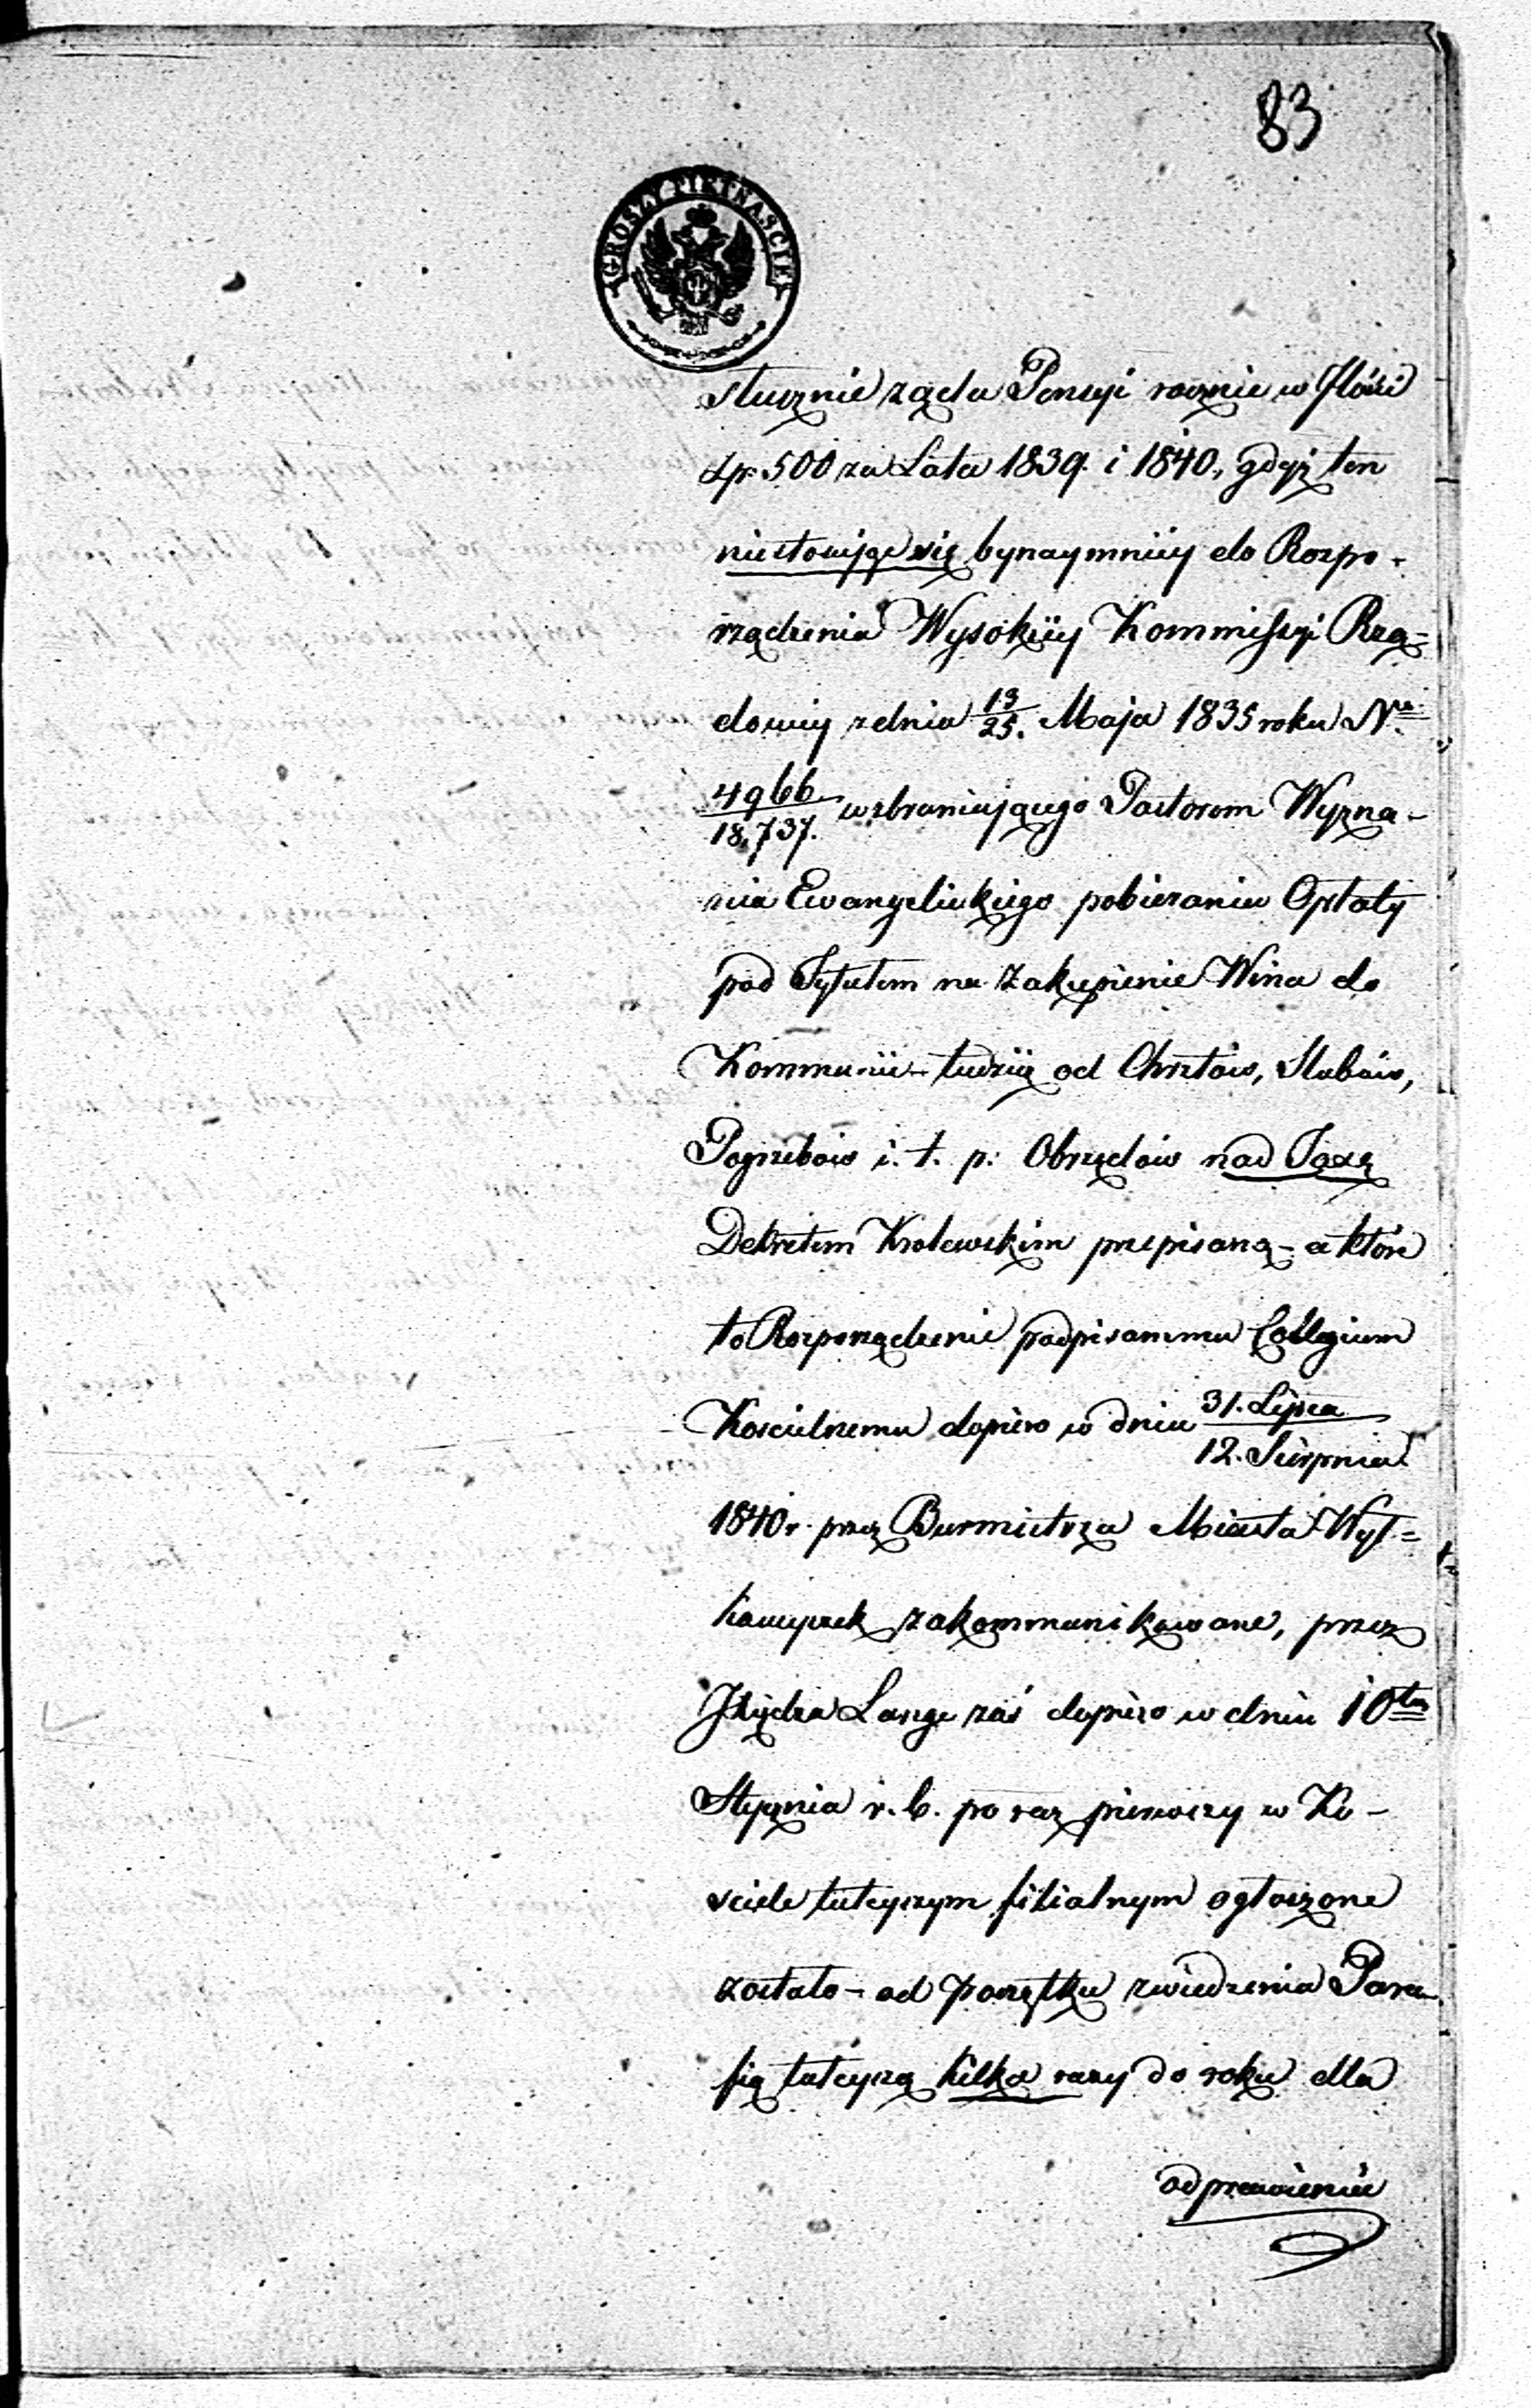 83
GROSZY PIETNAŚCIE
słusznie żąda Pensyi rocznie w Ilości
złp. 500 za Lata 1839. i 1840., gdyż ten
niestosując się bynaymniey do Rozpo-
rządzenia Wysokiey Kommissyi Rzą-
dowey z dnia 13/25. Maja 1835 roku Nro
4966/18,737. wzbraniającego Pastorom Wyzna-
nia Ewangelickiego pobieraniu Opłaty
pod Tytułem na Zakupienie Wina do
Kommunii – tudzież od Chrztów, Slubów,
Pogrzebów i. t. p: Obrzędów nad Taxę
Dekretem Krolewskim przepisaną – a które
to Rozporządzenie podpisanemu Collegium
Koscielnemu dopiero w dniu 31. Lipca
12. Sierpnia
1840 r. przez Burmistrza Miasta Wył=
kowyszek zakommunikowane, przez
Xiędza Lange zaś dopiero w dniu 10tm
Stycznia r. b. po raz pierwszy w Ko-
sciele tuteyszym filialnym ogłoszone
zostało – od początku zwiedzenia Para-
fią tuteyszą kilka razy do roku dla
odprawienia